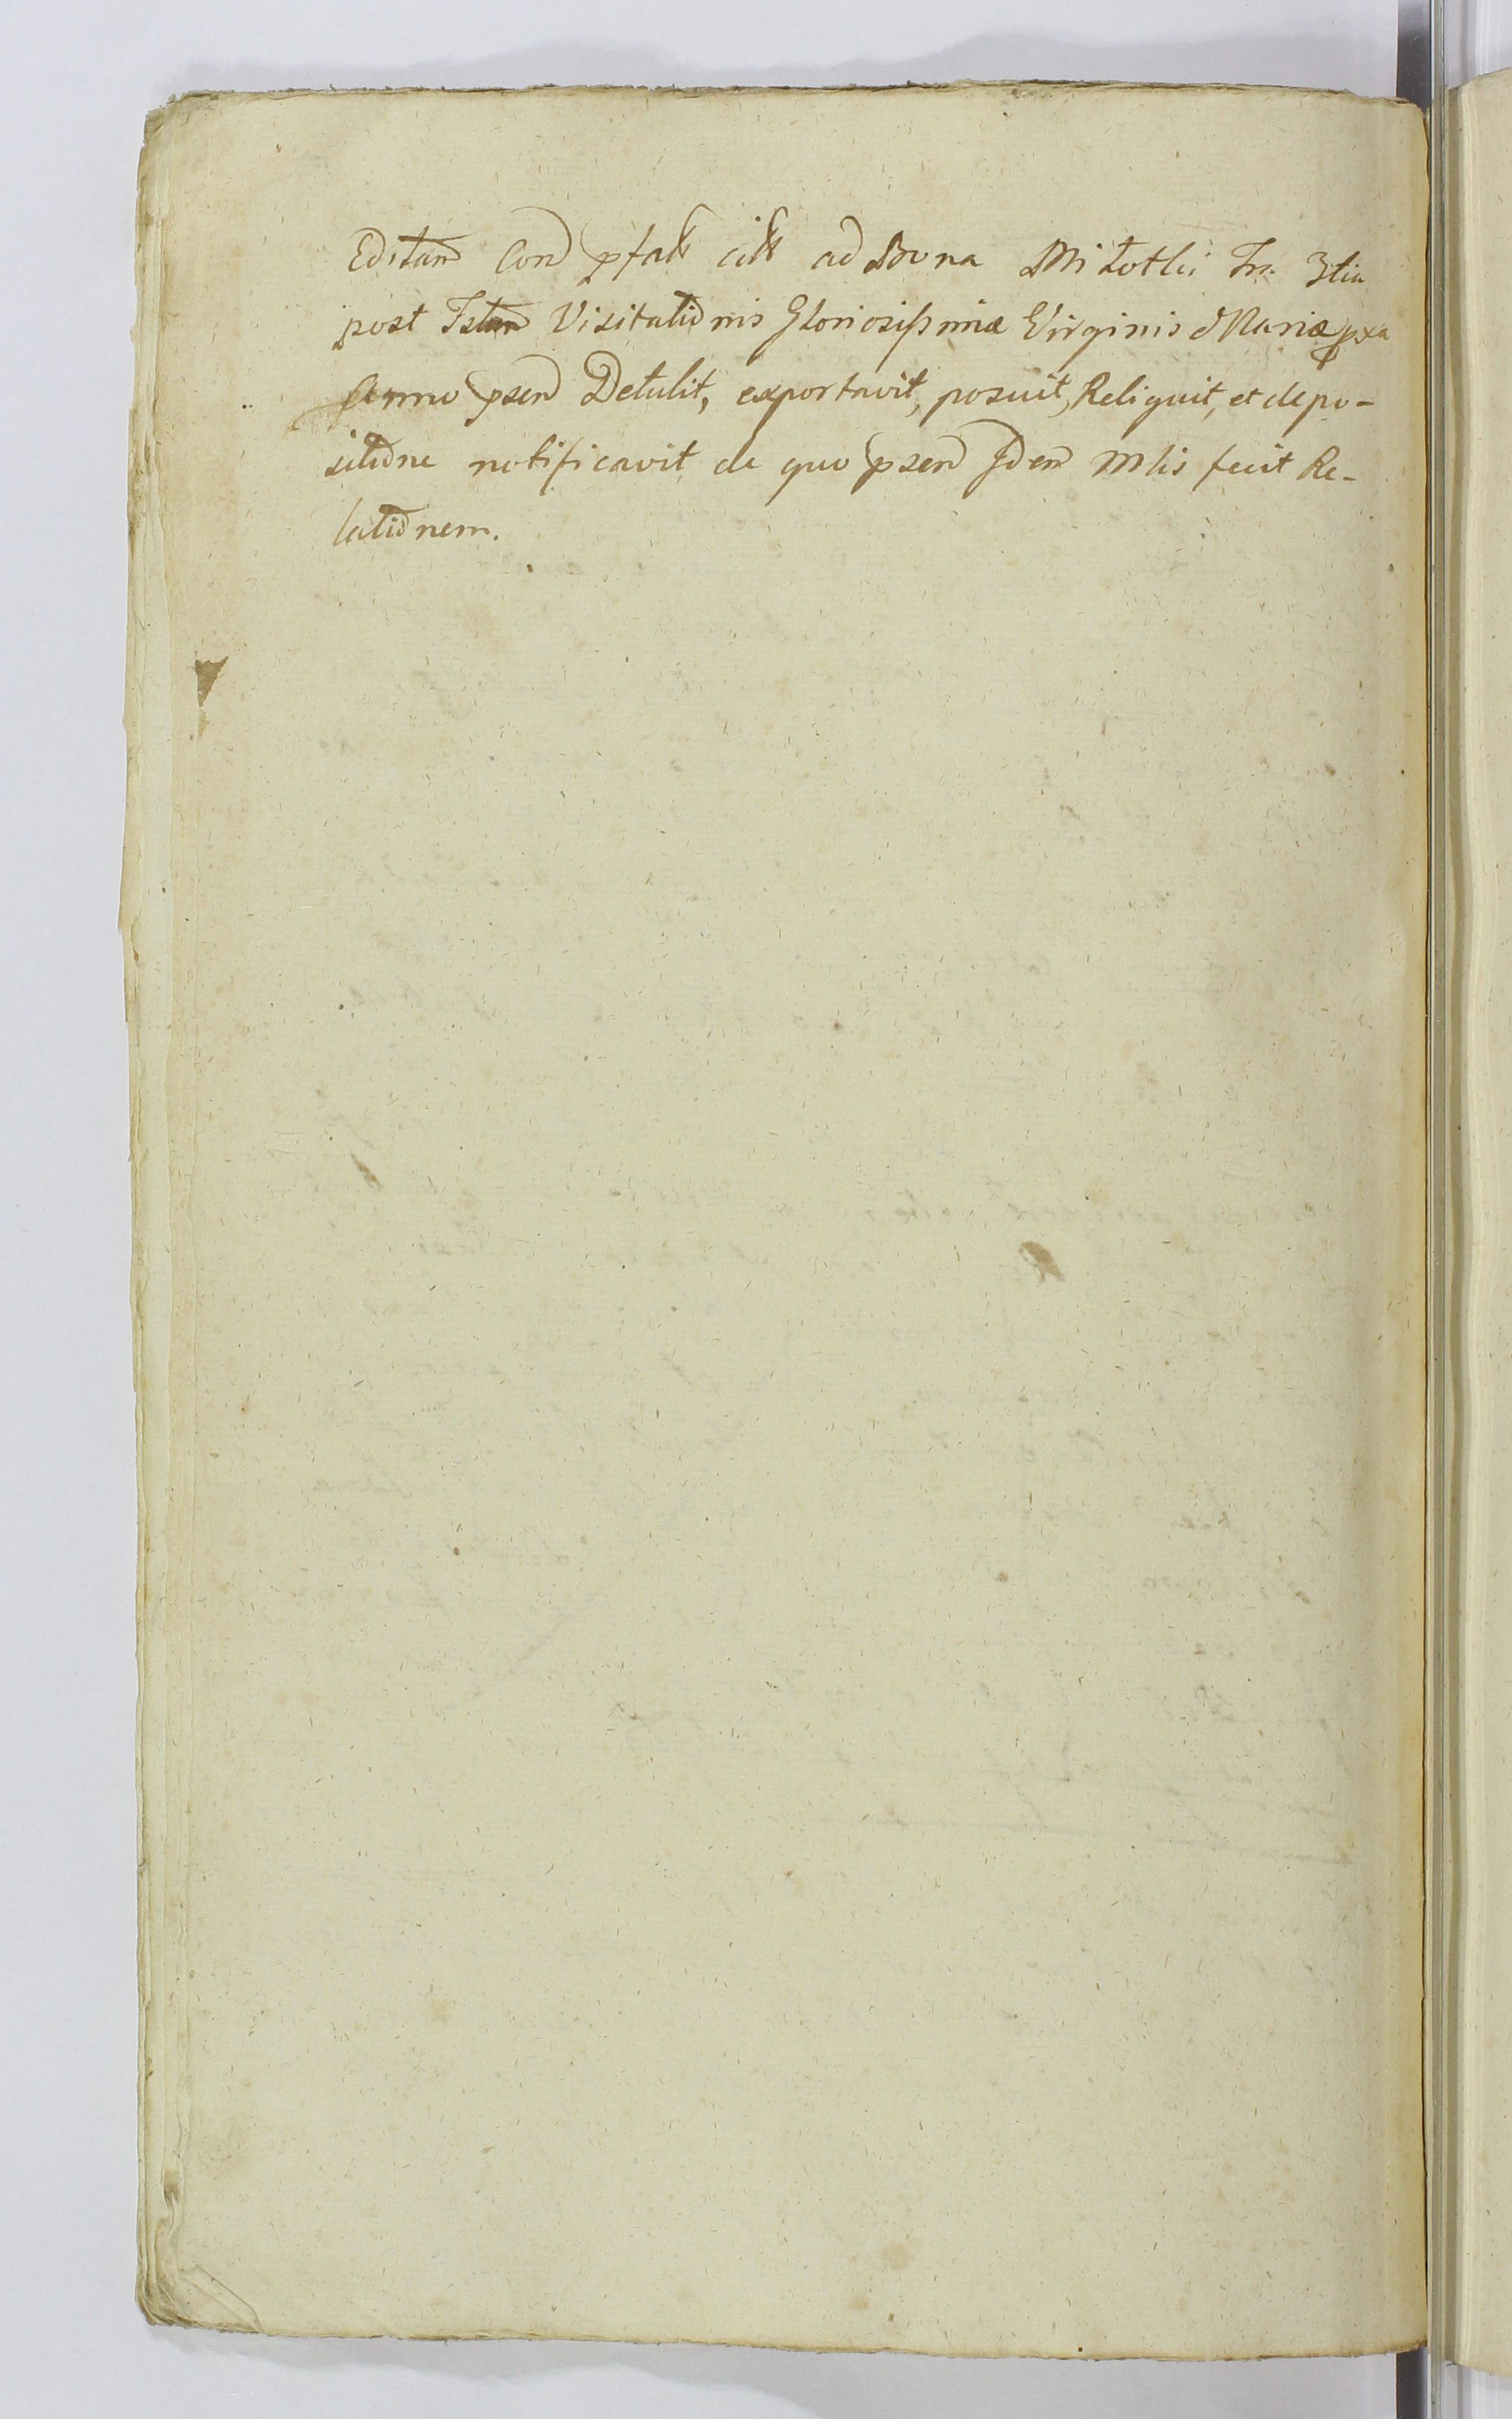 Editam Con pfatt citt ad Bona Mitotlii Fra 3tia
post Fstum Visitationis Gloriosissimæ Virginis Mariæ pxa
Anno psen Detulit, exportavit, posuit, Reliquit, et depo-
sitione notificavit de quo psen Idem Mlis fecit Re-
lationem.